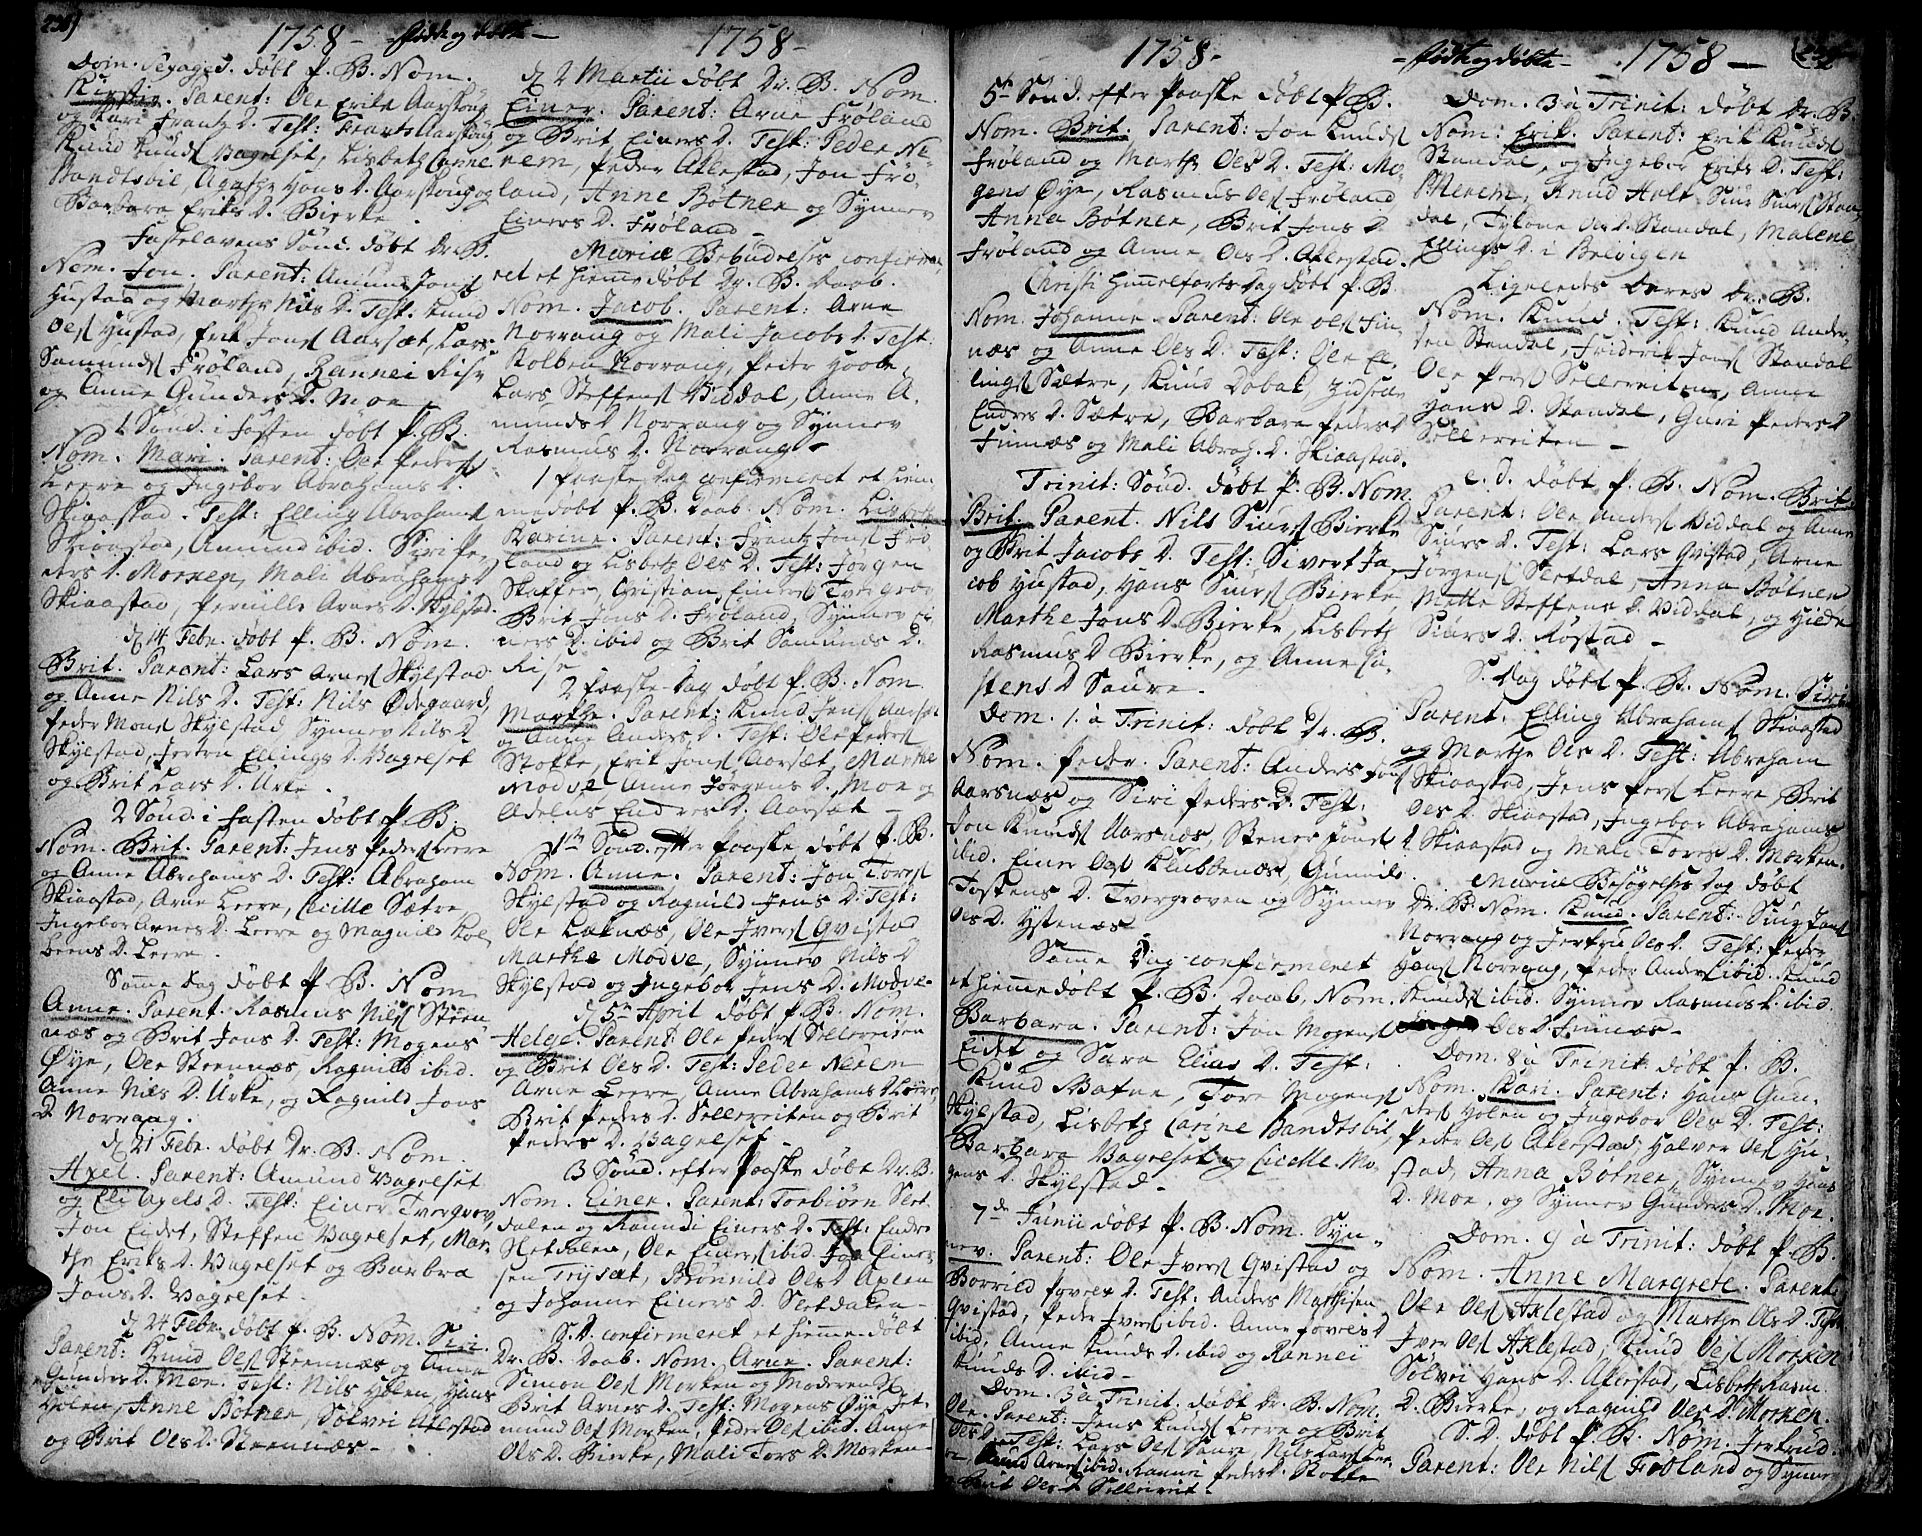 1758 - fødte og døbte - 1758 -
Dom. Sexages. døbt P. B. Nom.
Kirstin. Parent: Ole Eriks Aarskoug
og Kari Frantz D. Test: Frants Aarskoug
Knud Knuds Vagelset, Lisbeth Carine
Bandtsbil, Agathe Hans D. Aarskoug og
Barbara Eriks D. Bierke.
Fastelavens Sønd. døbt Dr. B.
Nom. Jon. Parent: Amund Jons
Hustad og Marthe Nils D. Test: Knud
Oles Hustad, Erik Jons Aarsæt, Lars
Samunds Frøland, Rannei Rise
og Anne Gunders D. Moe
1 Sønd. i Fasten døbt P. B.
Nom. Mari. Parent: Ole Peders
Leere og Ingebor Abrahams D.
Skiaastad. Test: Elling Abrahams
Skiaastad, Amund ibid. Siri Pe-
ders D. Morken, Mali Abrahams D
Skiaastad, Pernille Arnes D. Skylstad.
d 14 Febr. døbt P. B. Nom.
Brit. Parent: Lars Arnes Skylstad
og Anne Nils D. Test: Nils Ødegaard,
Peder Mons Skylstad Synnev Nils D
Skylstad, Jerten Ellings D. Vagelset
og Brit Lars D. Urke.
2 Sønd. i Fasten døbt P. B.
Nom. Brit. Parent: Jens Peders Leere
og Anne Abrahams D. Test: Abraham
Skiaastad, Arne Leere, Cecille Sætre
Ingebor Arnes D. Leere og Magnild Kol-
beens D. Leere.
Samme dag døbt P. B. Nom
Anne. Parent. Rasmus Nils Steen-
næs og Brit Jons D. Test: Mogens
Øye, Ole Steennæs, Ragnild ibid.
Anne Nils D. Urke, og Ragnild Jons
D. Norrang.
d 21 Febr. døbt Dr. B. Nom.
Axel. Parent: Amund Vagelset
og Eli Axels D. Test: Einer Tvergrov,
Jon Eidet, Steffen Vagelset, Mar-
the Eriks D. Vagelset og Barbra
Jons D. Vagelset.
d 24 Febr. døbt P. B. Nom. Siri.
Parent: Knud Oles Steennæs og Anne
Gunders D. Moe. Test: Nils Holen, Hans
Holen, Anne Botnen, Sølvei Aklestad
og Brit Oles D. Steennæs -
d 2 Martii døbt Dr. B. Nom.
Einer. Parent: Arne Frøland
og Brit Einers D. Test: Peder Ne-
rem, Peder Aklestad, Jon Frø-
land, Anne Bøtnen og Synnev
Einers D. Frøland -
Mariæ Bebudelses confirme-
ret et hiemmedøbt Dr. B. Daab.
Nom. Jacob. Parent: Arne
Norrang og Mali Jacobs D. Test:
Kolben Norrang, Peder Hoobe
Lars Steffens Viddal, Anne A-
munds D Norrang og Synnev
Rasmus D. Norrang -
1 Paaske dag confirmeret et hiem
medøbt P. B. Daab. Nom. Lisbeth
Karine. Parent: Frantz Jons Frø-
land og Lisbeth Oles D. Test: Jørgen
Skaffer, Christian Einers Tvergrov
Brit Jons D. Frøland, Synnev Ei-
ners D. ibid og Brit Samunds D.
Rise
2 Paaske dag døbt P. B. Nom
Marthe. Parent: Knud Jons Aarsæt
og Anne Anders D. Test: Ole Peders
Stokke, Erik Jons Aarsæt, Marthe
Modve Anne Jørgens D. Moe og
Adelus Endres D. Aarsæt -
1ste Sønd. efter Paaske døbt P. B.
Nom. Anne. Parent: Jon Tores
Skylstad og Ragnild Jens D. Test:
Ole Loknæs, Ole Ivers Qvistad
Marthe Modve, Synnev Nils D
Skylstad og Ingebor Jens D. Modve-
d 5te April døbt P. B. Nom.
Helge. Parent: Ole Peders Sellereiten
og Brit Oles D. Test: Peder Nerem
Arne Leere, Anne Abrahams D Leere
Brit Peders D. Sellereiten og Brit
Peders D. Vagelset -
3 Sønd. efter Paaske døbt Dr. B.
Nom. Einer. Parent: Torbiørn Slet-
dalen og Randi Einers D. Test: Endre
Sletdalen, Ole Einers ibid Jon Einer-
sen Trysæt, Brønnild Oles D Axlen
og Johanne Einers D. Sletdalen -
S. D. confirmeret et hiemme-døbt
Dr. B. Daab. Nom. Arne. Parent:
Simon Oles Morken og Moderen
Brit Arnes D. Test: Mogens Øye, Set-
mund Oles Morken, Peder Oles ibid. Anne
Oles D. Bierke, Mali Tors D. Morken -
1758 - fødte og døbte - 1758 -
5te Sønd. efter Paaske døbt P. B.
Nom. Brit. Parent: Jon Knuds
Frøland og Marthe Oles D. Test: Mo-
gens Øye, Rasmus Oles Frøland
Anna Bøtnen, Brit Jons D
Frøland og Anne Oles D. Aklestad.
Christi Himmelfarts Dag døbt P. B.
Nom. Johanne. Parent: Ole Oles Fin-
næs og Anne Oles D. Test: Ole El-
lings Sætre, Knud Dobal,
Endres D. Sætre, Barbara Peders D
Finnæs og Mali Abrah. D. Skiaastad.
Trinit: Sønd. døbt P. B. Nom
Brit. Parent. Nils Siurs Bierke
og Brit Jacobs D. Test: Sivert Ja-
cob Hustad, Hans Siurs Bierke,
Marthe Jons D. Bierke, Lisbeth
Rasmus D Bierke, og Anne Tu-
stens D Saure.
Dom. 1. à Trinit: døbt Dr. B.
Nom. Peder. Parent: Anders Jons
Aarsnæs og Siri Peders D. Test:
Jon Knuds Aarsnæs, Stener Jons
ibid. Einer Oles Klubbenæs, Gunnild
Tostens D. Tvergroven og Synnev
Oles D. Ystenæs -
Samme Dag confirmeret
et hiemmedøbt P. B. Daab, Nom.
Barbara. Parent: Jon Mogens
Eidet og Sara Elias D. Test:
Knud Bafne, Tore Mogens
Skylstad, Lisbeth Carine Bandtsbil,
Barbara Vagelset og Cicelle Mo-
gens D. Skylstad -
7de Junii døbt P. B. Nom. Syn-
nev. Parent: Ole Ivers Qvistad og
Borrild Povels D. Test: Anders Mathisen
Qvistad, Peder Ivers ibid. Anne Povels D
ibid, Anne Knuds D. ibid og Rannei
Knuds D. ibid -
Dom. 3 à Trinit. døbt Dr. B. Nom.
Ole. Parent: Jens Knuds Leere og Brit
Oles D. Test: Lars Oles Saure, Nils Lars Lee-
re, Knud Arnes ibid. Rannei Peders D. Stokke
og Brit Oles D Sellereit -
Dom. 3 à Trinit: døbt Dr. B.
Nom: Erik. Parent: Erik Knuds
Standal, og Ingebor Eriks D. Test:
P Nerem, Knud Holt Siur Siurs Stan-
dal, Tylone Oles D. Standal, Malene
Ellings D. i Beløigen
Ligeledes deres Dr. B.
Nom. Knud. Test: Knud Ander-
sen Standal, Friderik Jons Standal
Ole Pers Sellereiten, Anne
Hans D. Standal, Guri Peders D
Sellereiten -
e. d. døbt P. B. Nom. Brit.
Parent: Ole Anders Viddal og Anne
Siurs D. Test: Lars Qvistad, Arne
Jørgens Sletdal, Anna Bøtnen
Mette Steffens D. Viddal, og Hilde
Siurs D. Røstad -
S. Dag døbt P. B. Nom. Siri
Parent. Elling Abrahams Skiaastad
og Marthe Oles D. Test: Abraham
Skiaastad, Jens Pers Leere Brit
Oles D. Skiaastad, Ingebor Abrahams
D Skiaastad og Mali Tores D. Morken.
Mariæ Besøgelses Dag døbt
Dr. B. Nom. Knud. Parent: Siur Jons
Norrang og Jertru Oles D Test: Peder
Hans Norrang, Peder Anders ibid. Knud
Knuds ibid. Synnev Rasmus D. ibid
Oles D Finnæs -
Dom. 8 à Trinit: døbt P. B.
Nom. Kari. Parent: Hans Gun-
ders Holen og Ingebor Oles D. Test:
Peder Oles Aklestad, Halver Oles Hu-
stad, Anna Botnen, Synnev Hans
D. Moe, og Synnev Gunders D. Moe.
Dom. 9 à Trinit: døbt P. B.
Nom. Anne Margrete. Parent:
Ole Oles Axlestad og Marthe Oles D. Test:
Iver Oles Axlestad, Knud Oles Morken
Sølvei Hans D. Aklestad, Lisbeth Rasm.
D. Bierke, og Ragnild Oles D. Morken.
S. D. døbt P. B. Nom. Jertrud.
Parent: Ole Nils Frøland og Synnev